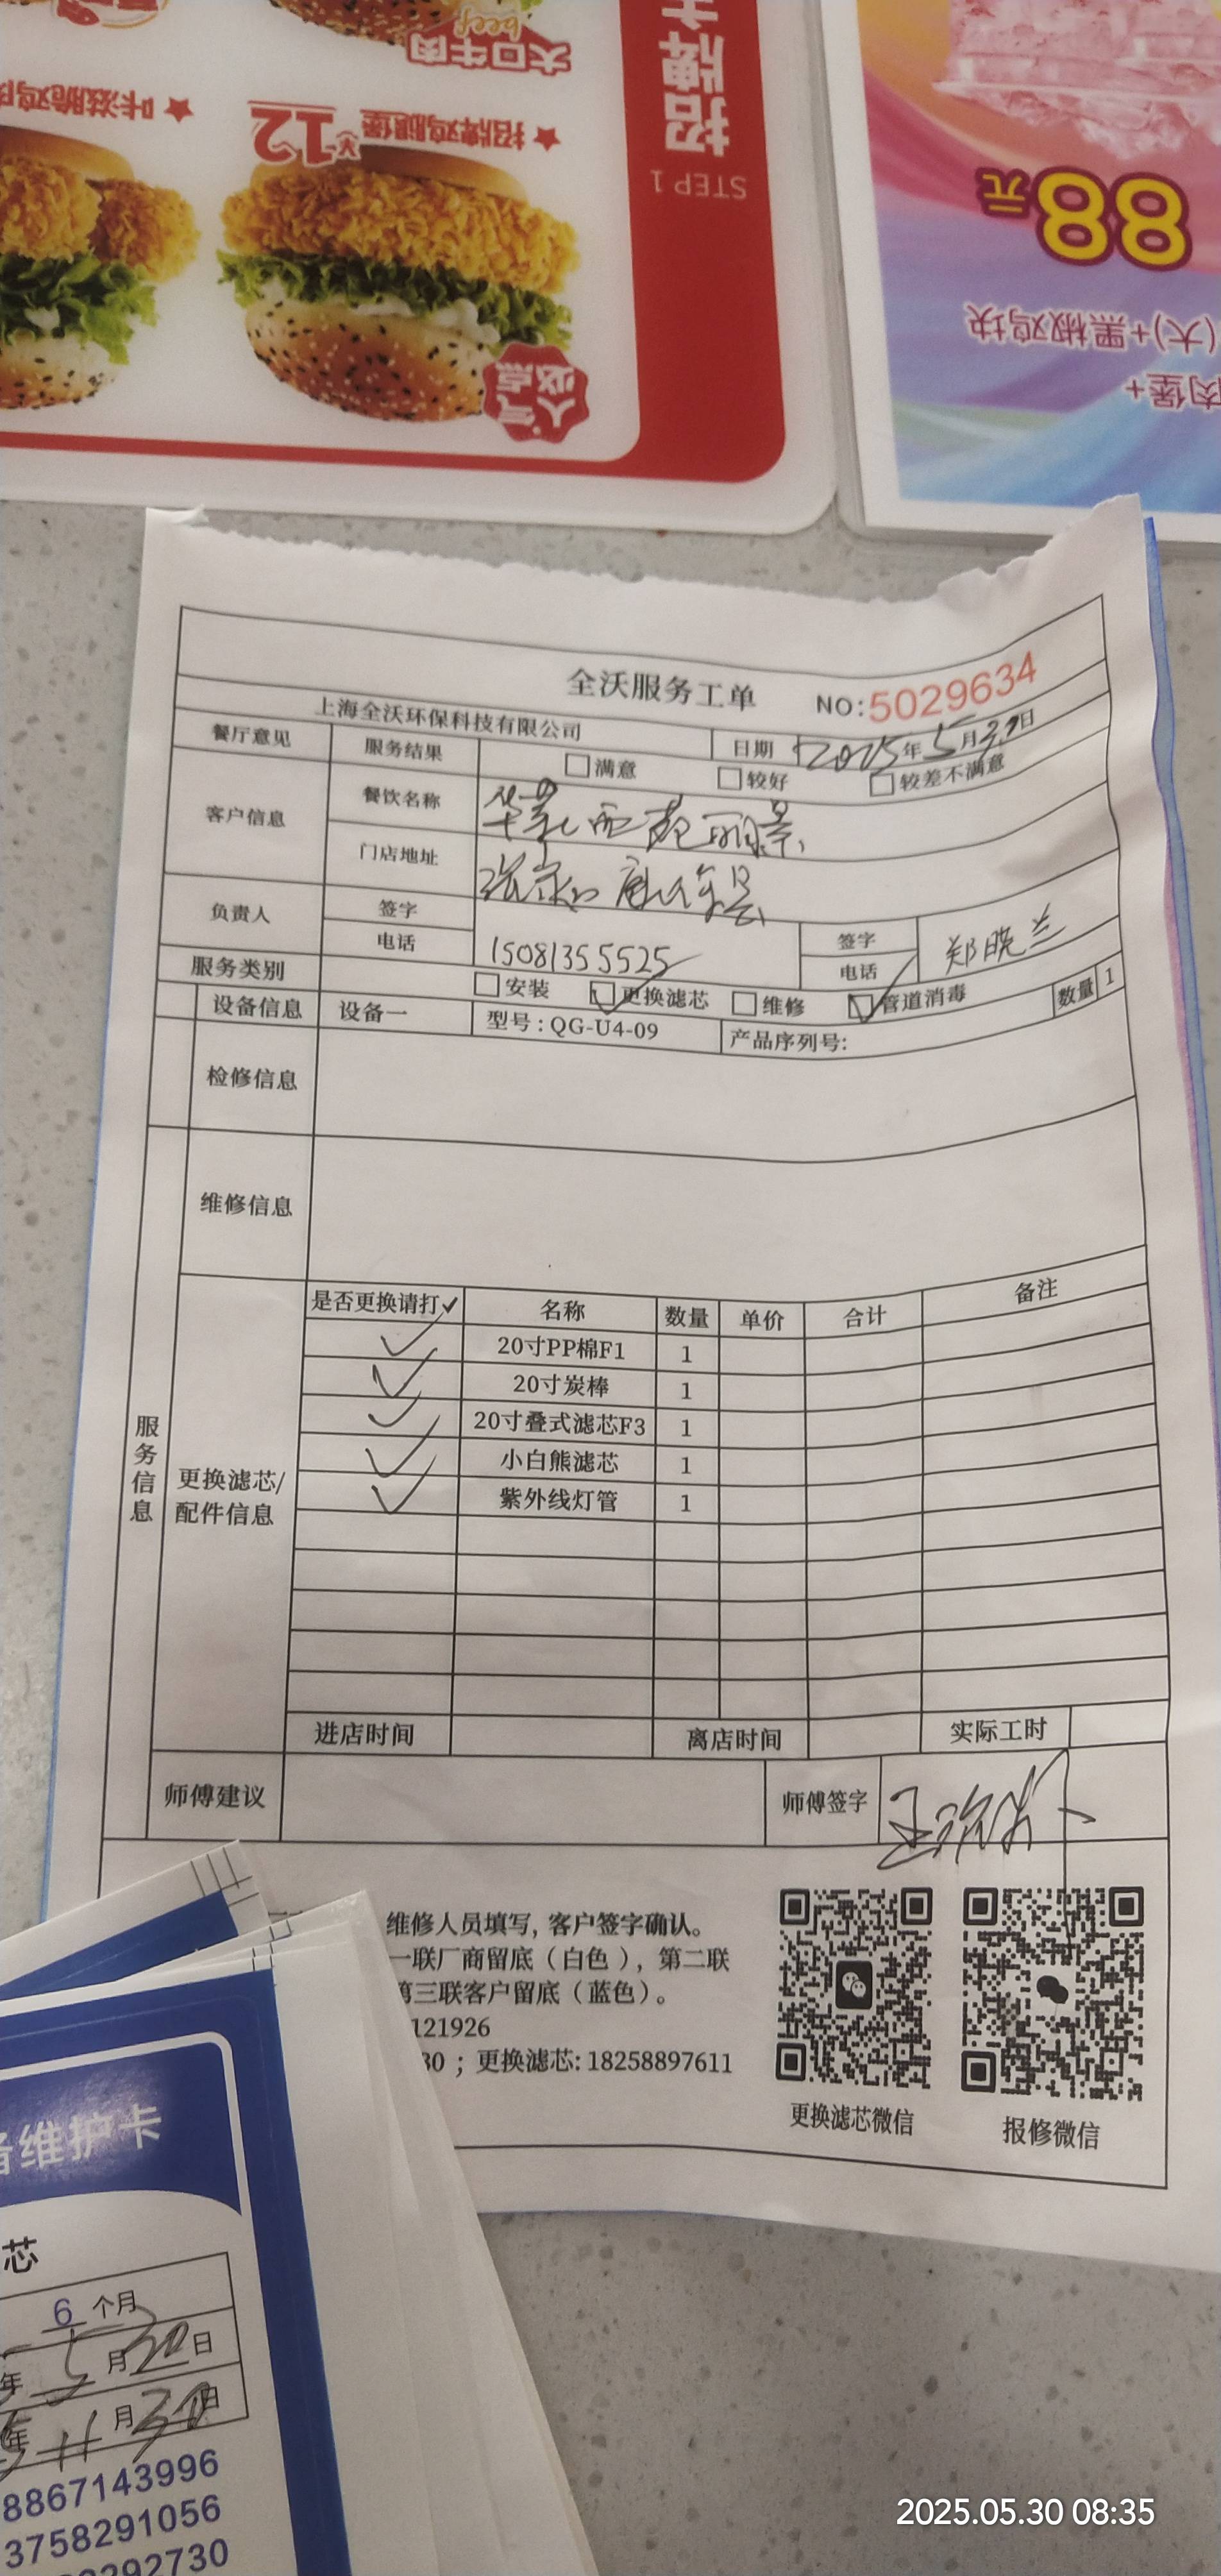 大口牛肉
beef
招牌
★招牌鸡腿堡 ¥12
★咔滋脆鸡
STEP 1
人气必点
88元
(大)+黑椒鸡块
肉堡+
全沃服务工单 NO:5029634
上海全沃环保科技有限公司 日期 2025年5月30日
餐厅意见 服务结果 □满意 □较好 □较差不满意
客户信息 餐饮名称 华莱西苑丽景
门店地址
负责人 签字 签字 郑晓兰
电话 15081355525 电话
服务类别 □安装 ☑更换滤芯 □维修 ☑管道消毒
设备信息 设备一 型号:QG-U4-09 产品序列号: 数量 1
检修信息
维修信息
服务信息
更换滤芯/配件信息
是否更换请打✓ 名称 数量 单价 合计 备注
✓ 20寸PP棉F1 1
✓ 20寸炭棒 1
✓ 20寸叠式滤芯F3 1
✓ 小白熊滤芯 1
✓ 紫外线灯管 1
进店时间 离店时间 实际工时
师傅建议 师傅签字
维修人员填写,客户签字确认。
一联厂商留底(白色),第二联
第三联客户留底(蓝色)。
121926
30;更换滤芯:18258897611
更换滤芯微信 报修微信
备维护卡
芯
6 个月
年 5 月 30 日
年 11 月 30 日
8867143996
3758291056
0292730
2025.05.30 08:35